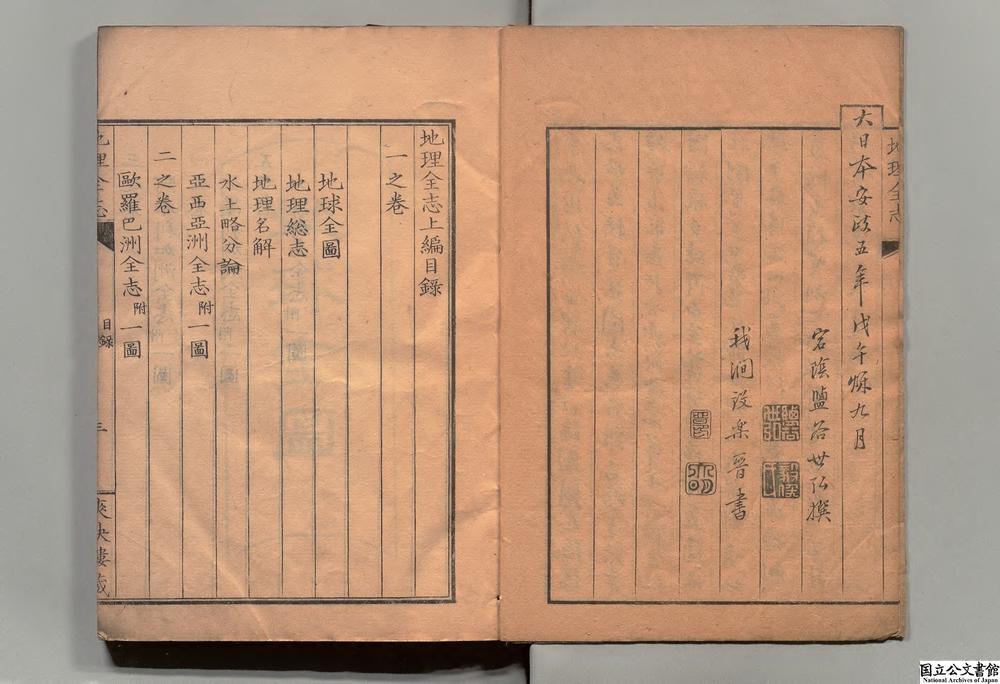 大日本安政五年戊午穐九月
宕陰鹽谷世弘撰
我澗設楽晉書
地理全志
地理全志上編目錄
一之卷
地球全圖
地理総志
地理名解
水土略分論
亞西亞洲全志附一圖
二之卷
歐羅巴洲全志附一圖
地理全志
目錄
三
爽快樓蔵
国立公文書館
National Archives of Japan